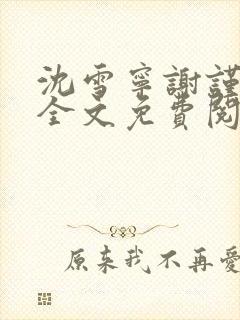 沈雪寧謝謹
全文免費閱
原來我不再愛